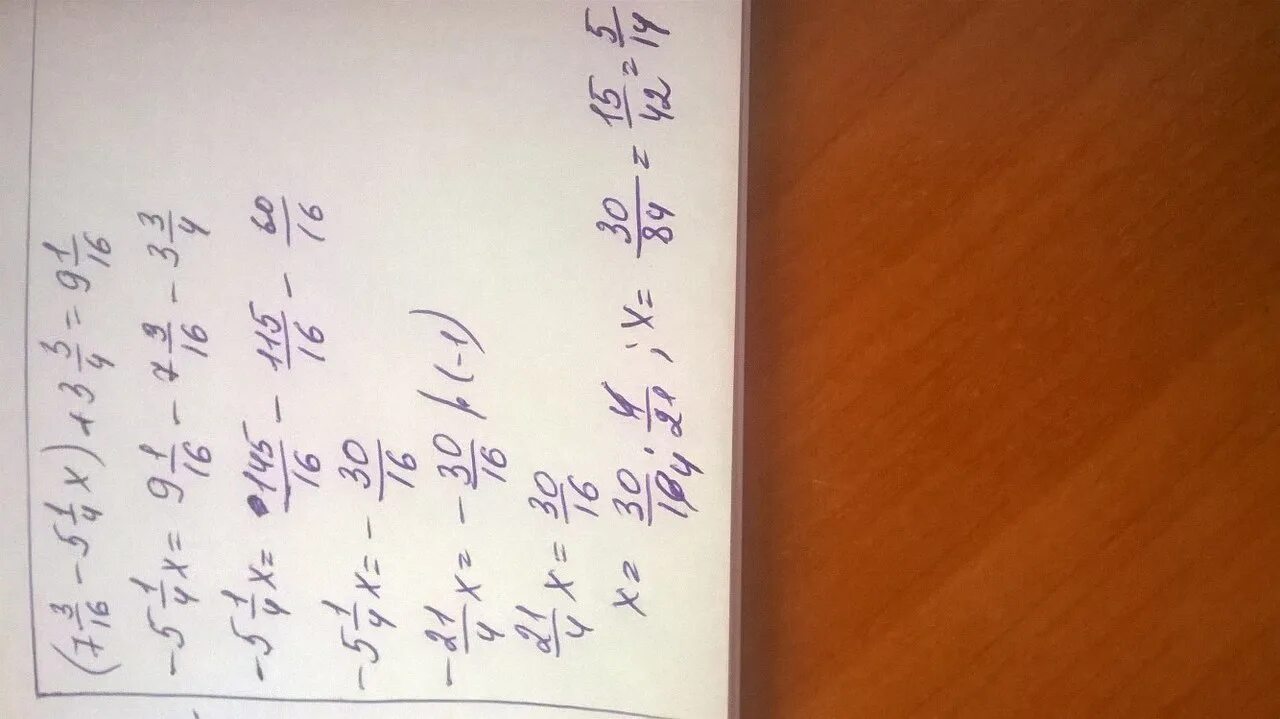 (7 3/16 - 5 1/4 x) + 3 3/4 = 9 1/16
-5 1/4 x = 9 1/16 - 7 3/16 - 3 3/4
-5 1/4 x = 145/16 - 115/16 - 60/16
-5 1/4 x = - 30/16
-21/4 x = - 30/16 /·(-1)
21/4 x = 30/16
x = 30/16 4 · 4/21 ; x = 30/84 = 15/42 = 5/14